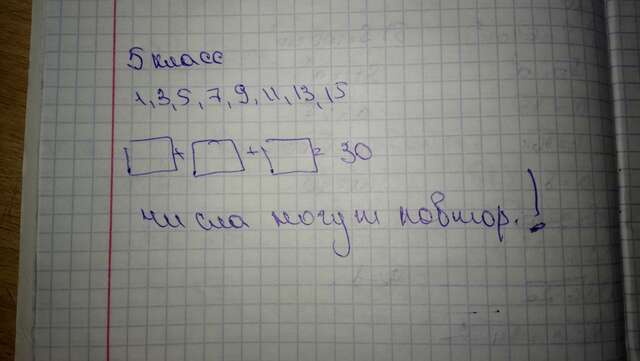 5 класс
1, 3, 5, 7, 9, 11, 13, 15
□ + □ + □ = 30
числа могут повтор. !